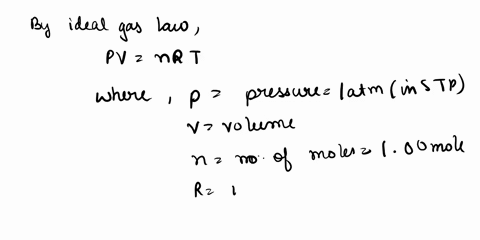 By ideal gas law,
PV = nRT
where, p = pressure = 1atm (in STP)
V = volume
n = no. of moles = 1.00mole
R =